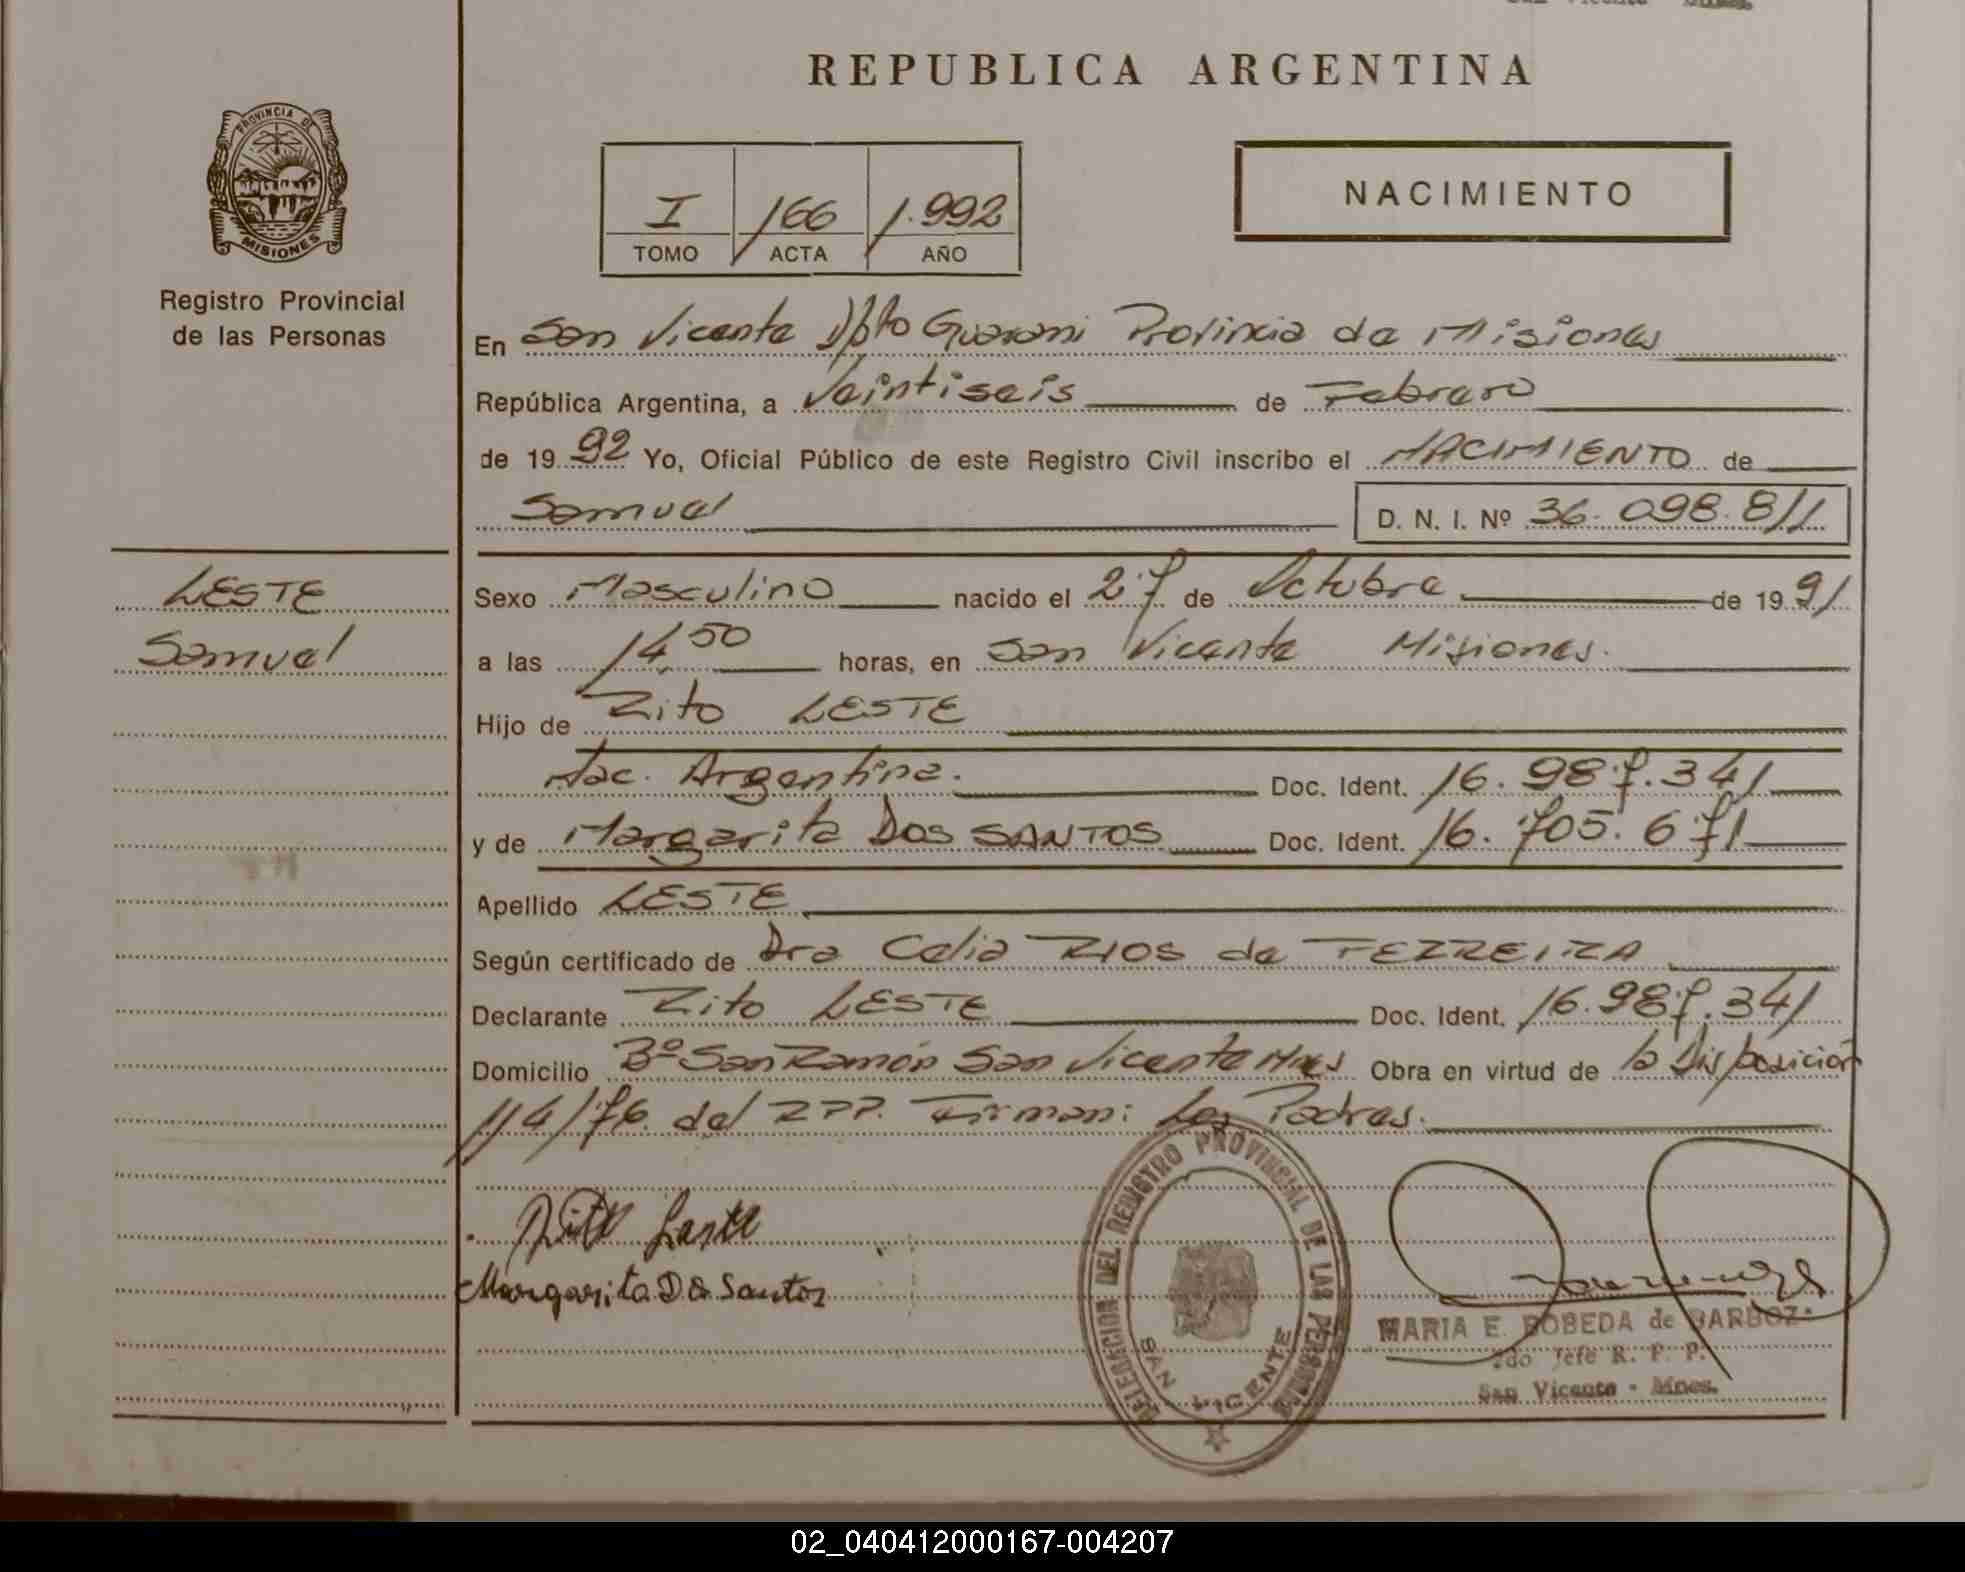 San Vicente Mnes.
REPUBLICA ARGENTINA
PROVINCIA DE
MISIONES
Registro Provincial
de las Personas
I 166 1.992
TOMO ACTA AÑO
NACIMIENTO
En San Vicente Dpto Guarani Provincia de Misiones
República Argentina, a Veintiseis de Febrero
de 1992 Yo, Oficial Público de este Registro Civil inscribo el NACIMIENTO de
Samuel D. N. I. Nº 36.098.811
LESTE
Samuel
Sexo Masculino nacido el 27 de Octubre de 1991
a las 14 50 horas, en San Vicente Misiones.
Hijo de Zito LESTE
Nac. Argentina. Doc. Ident. 16.987.341
y de Margarita DOS SANTOS Doc. Ident. 16.705.671
Apellido LESTE
Según certificado de Dra Celia RIOS de FERREIRA
Declarante Zito LESTE Doc. Ident. 16.987.341
Domicilio Bº San Ramón San Vicente Mnes Obra en virtud de la Disposición
114/76. del RPP. Firman: Los Padres.
Zito Leste
Margarita Do Santos
DELEGACION DEL REGISTRO PROVINCIAL DE LAS PERSONAS
SAN VICENTE
MARIA E. BOBEDA de BARBOZ
2do Jefe R. P. P.
San Vicente - Mnes.
02_040412000167-004207